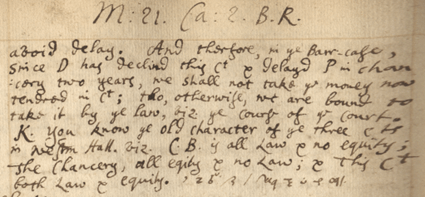 M: 21. Ca: 2. B.R.
avoid delay. And therfore, in ye Barr-case,
since D has declind this Ct & delayd P in chan
cery two years, we shall not take ye money now
tendred in Ct; tho, otherwise, we are bound to
take it by ye law, viz. ye course of ye Court.
K. you know ye old character of ye three Cts
in Westm Hall. viz. C B. is all Law & no equity;
The Chancery, all eqity & no Law; & This Ct
both Law & eqity.